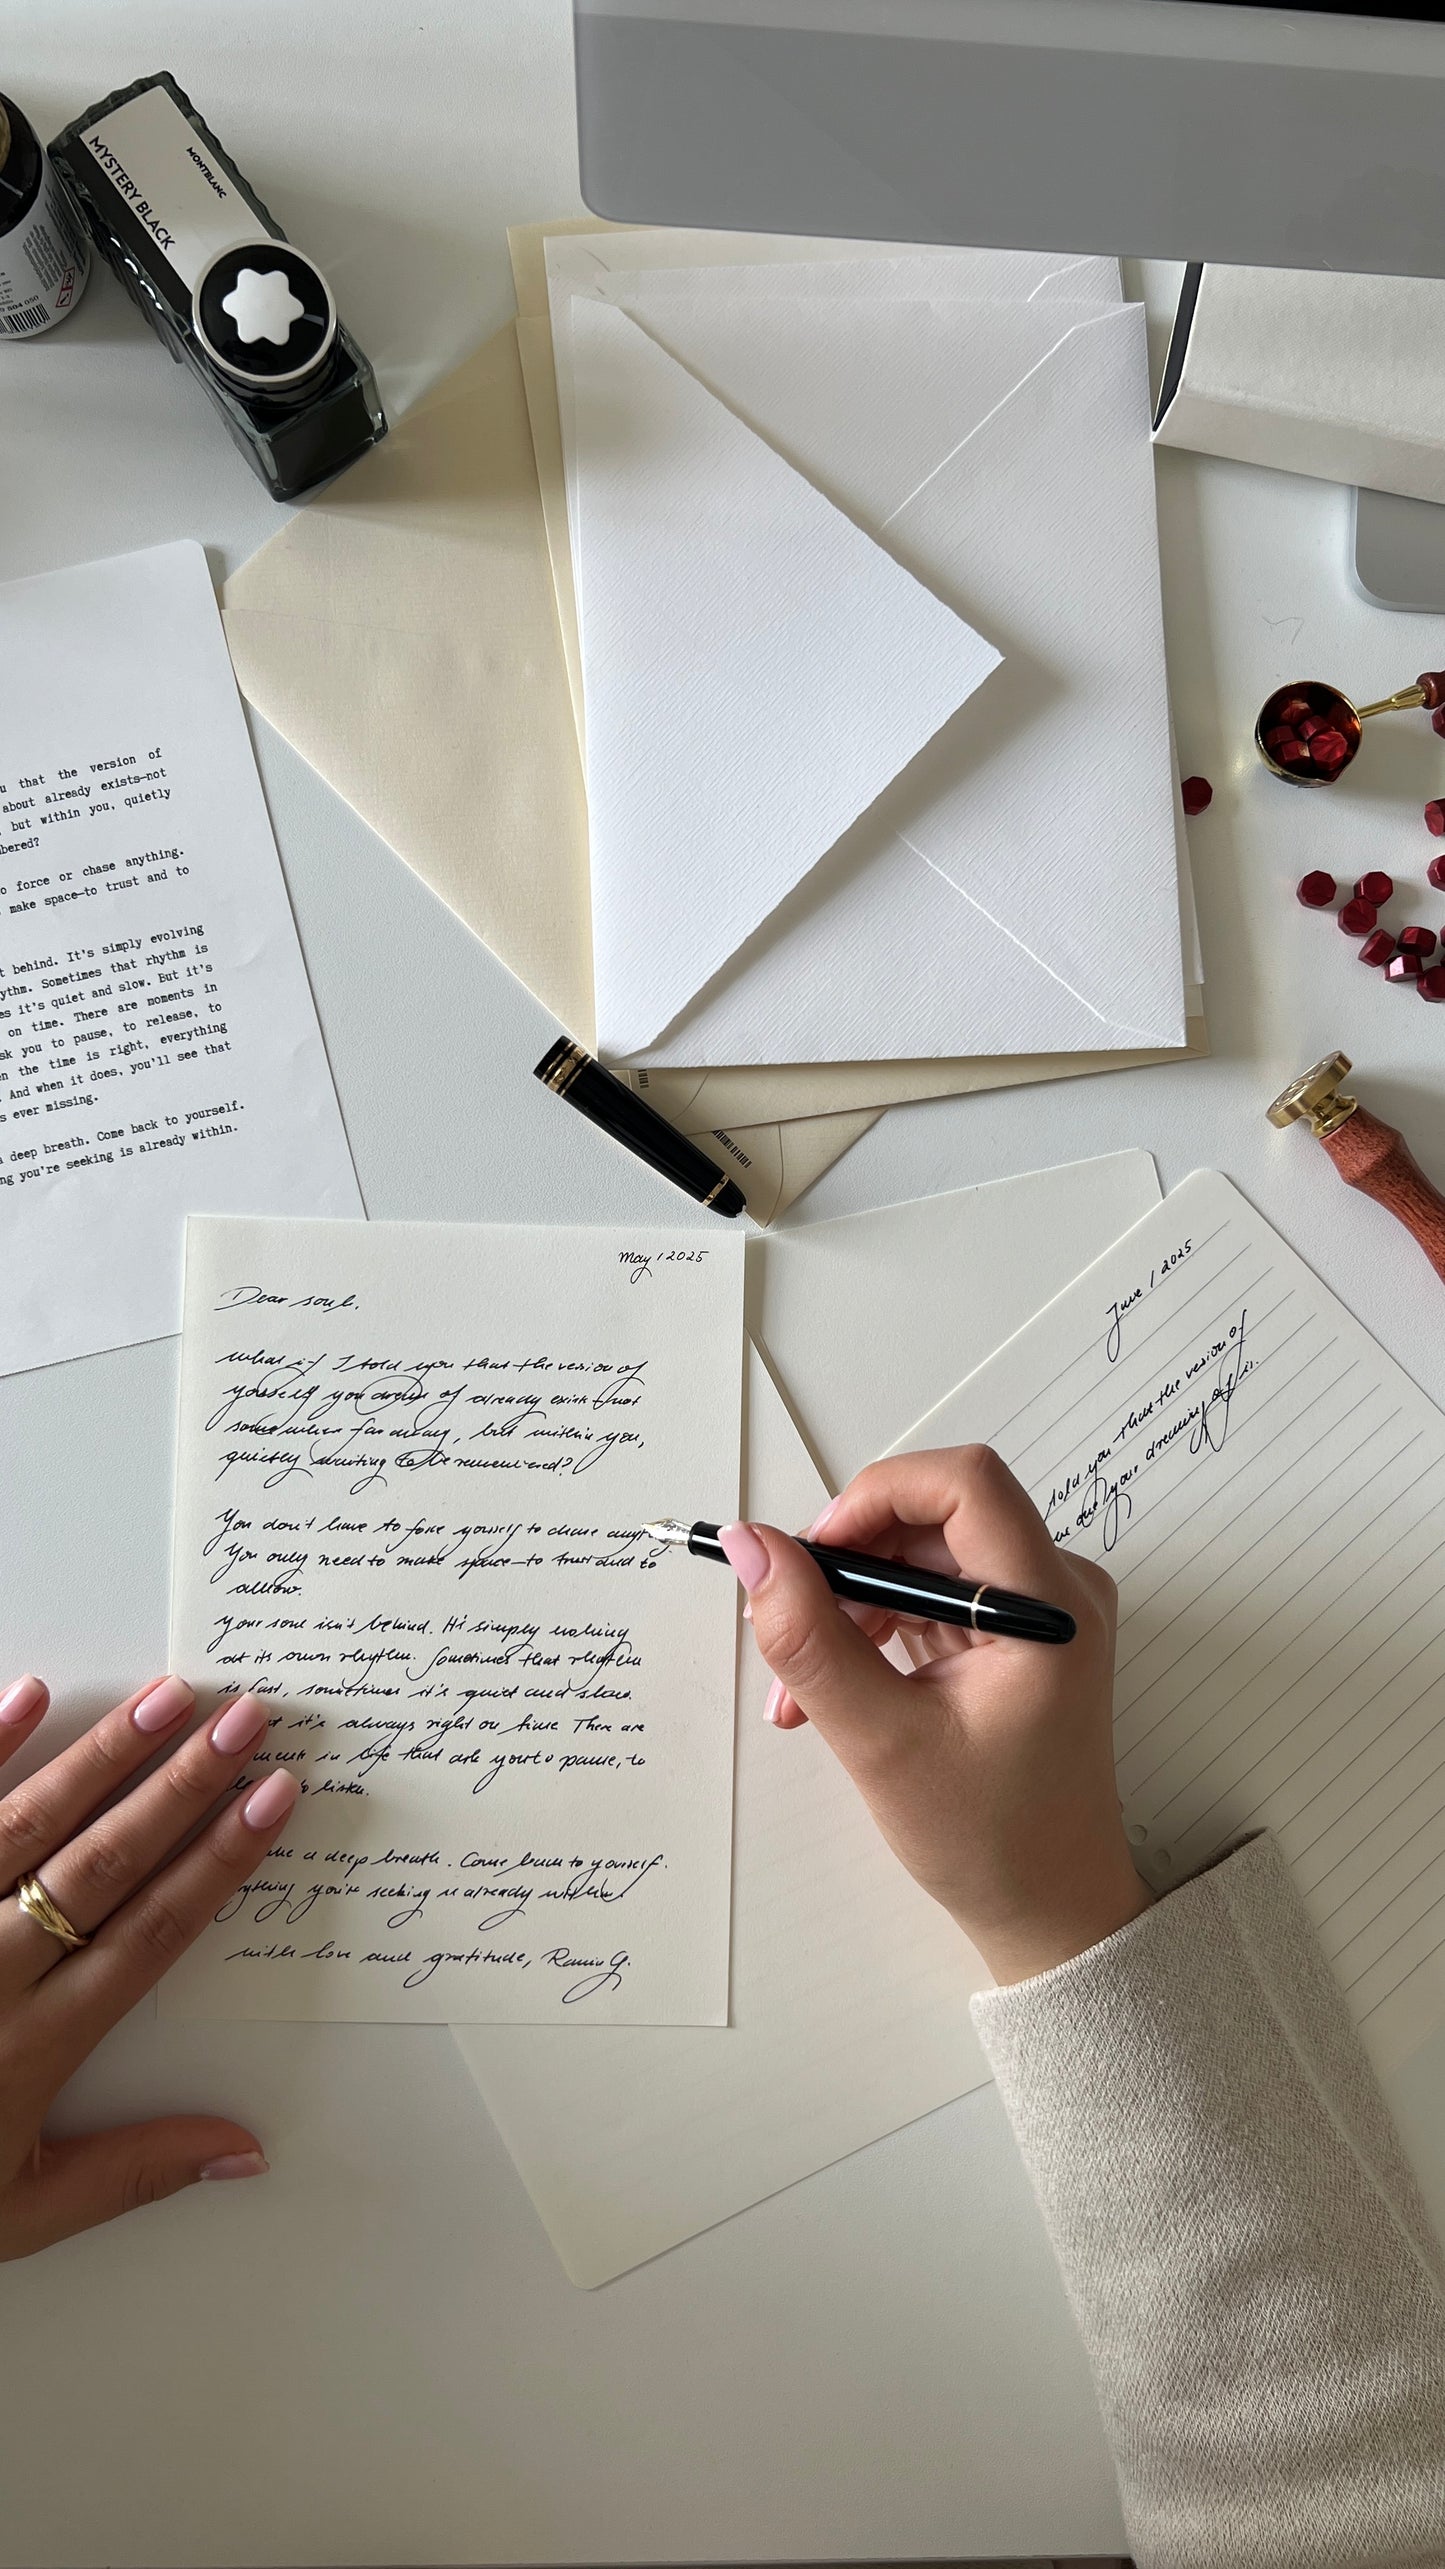 MONTBLANC
MYSTERY BLACK
504 050
that the version of
about already exists—not
but within you, quietly
force or chase anything.
make space—to trust and to
behind. It's simply evolving
Sometimes that rhythm is
it's quiet and slow. But it's
on time. There are moments in
you to pause, to release, to
the time is right, everything
And when it does, you'll see that
ever missing.
deep breath. Come back to yourself.
you're seeking is already within.
May / 2025
Dear soul,
What if I told you that the version of
yourself you dream of already exists—not
somewhere far away, but within you,
quietly waiting to be remembered?
You don't have to force yourself to chase
You only need to make space—to trust and to
allow.
Your soul isn't behind. It's simply evolving
at its own rhythm. Sometimes that rhythm
is fast, sometimes it's quiet and slow.
it's always right on time There are
in life that ask you to pause, to
listen.
a deep breath. Come back to yourself.
you're seeking is already within.
with love and gratitude, G.
June / 2025
told you that the version of
your dreaming of is.